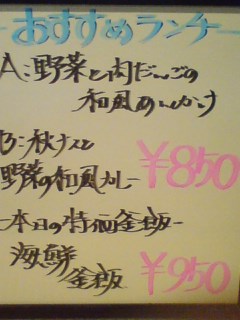 おすすめランチ
A:野菜と肉だんごの
和風あんかけ
B:秋ナスと
野菜の和風カレー ¥850
-本日の特価釜飯-
海鮮
釜飯 ¥950